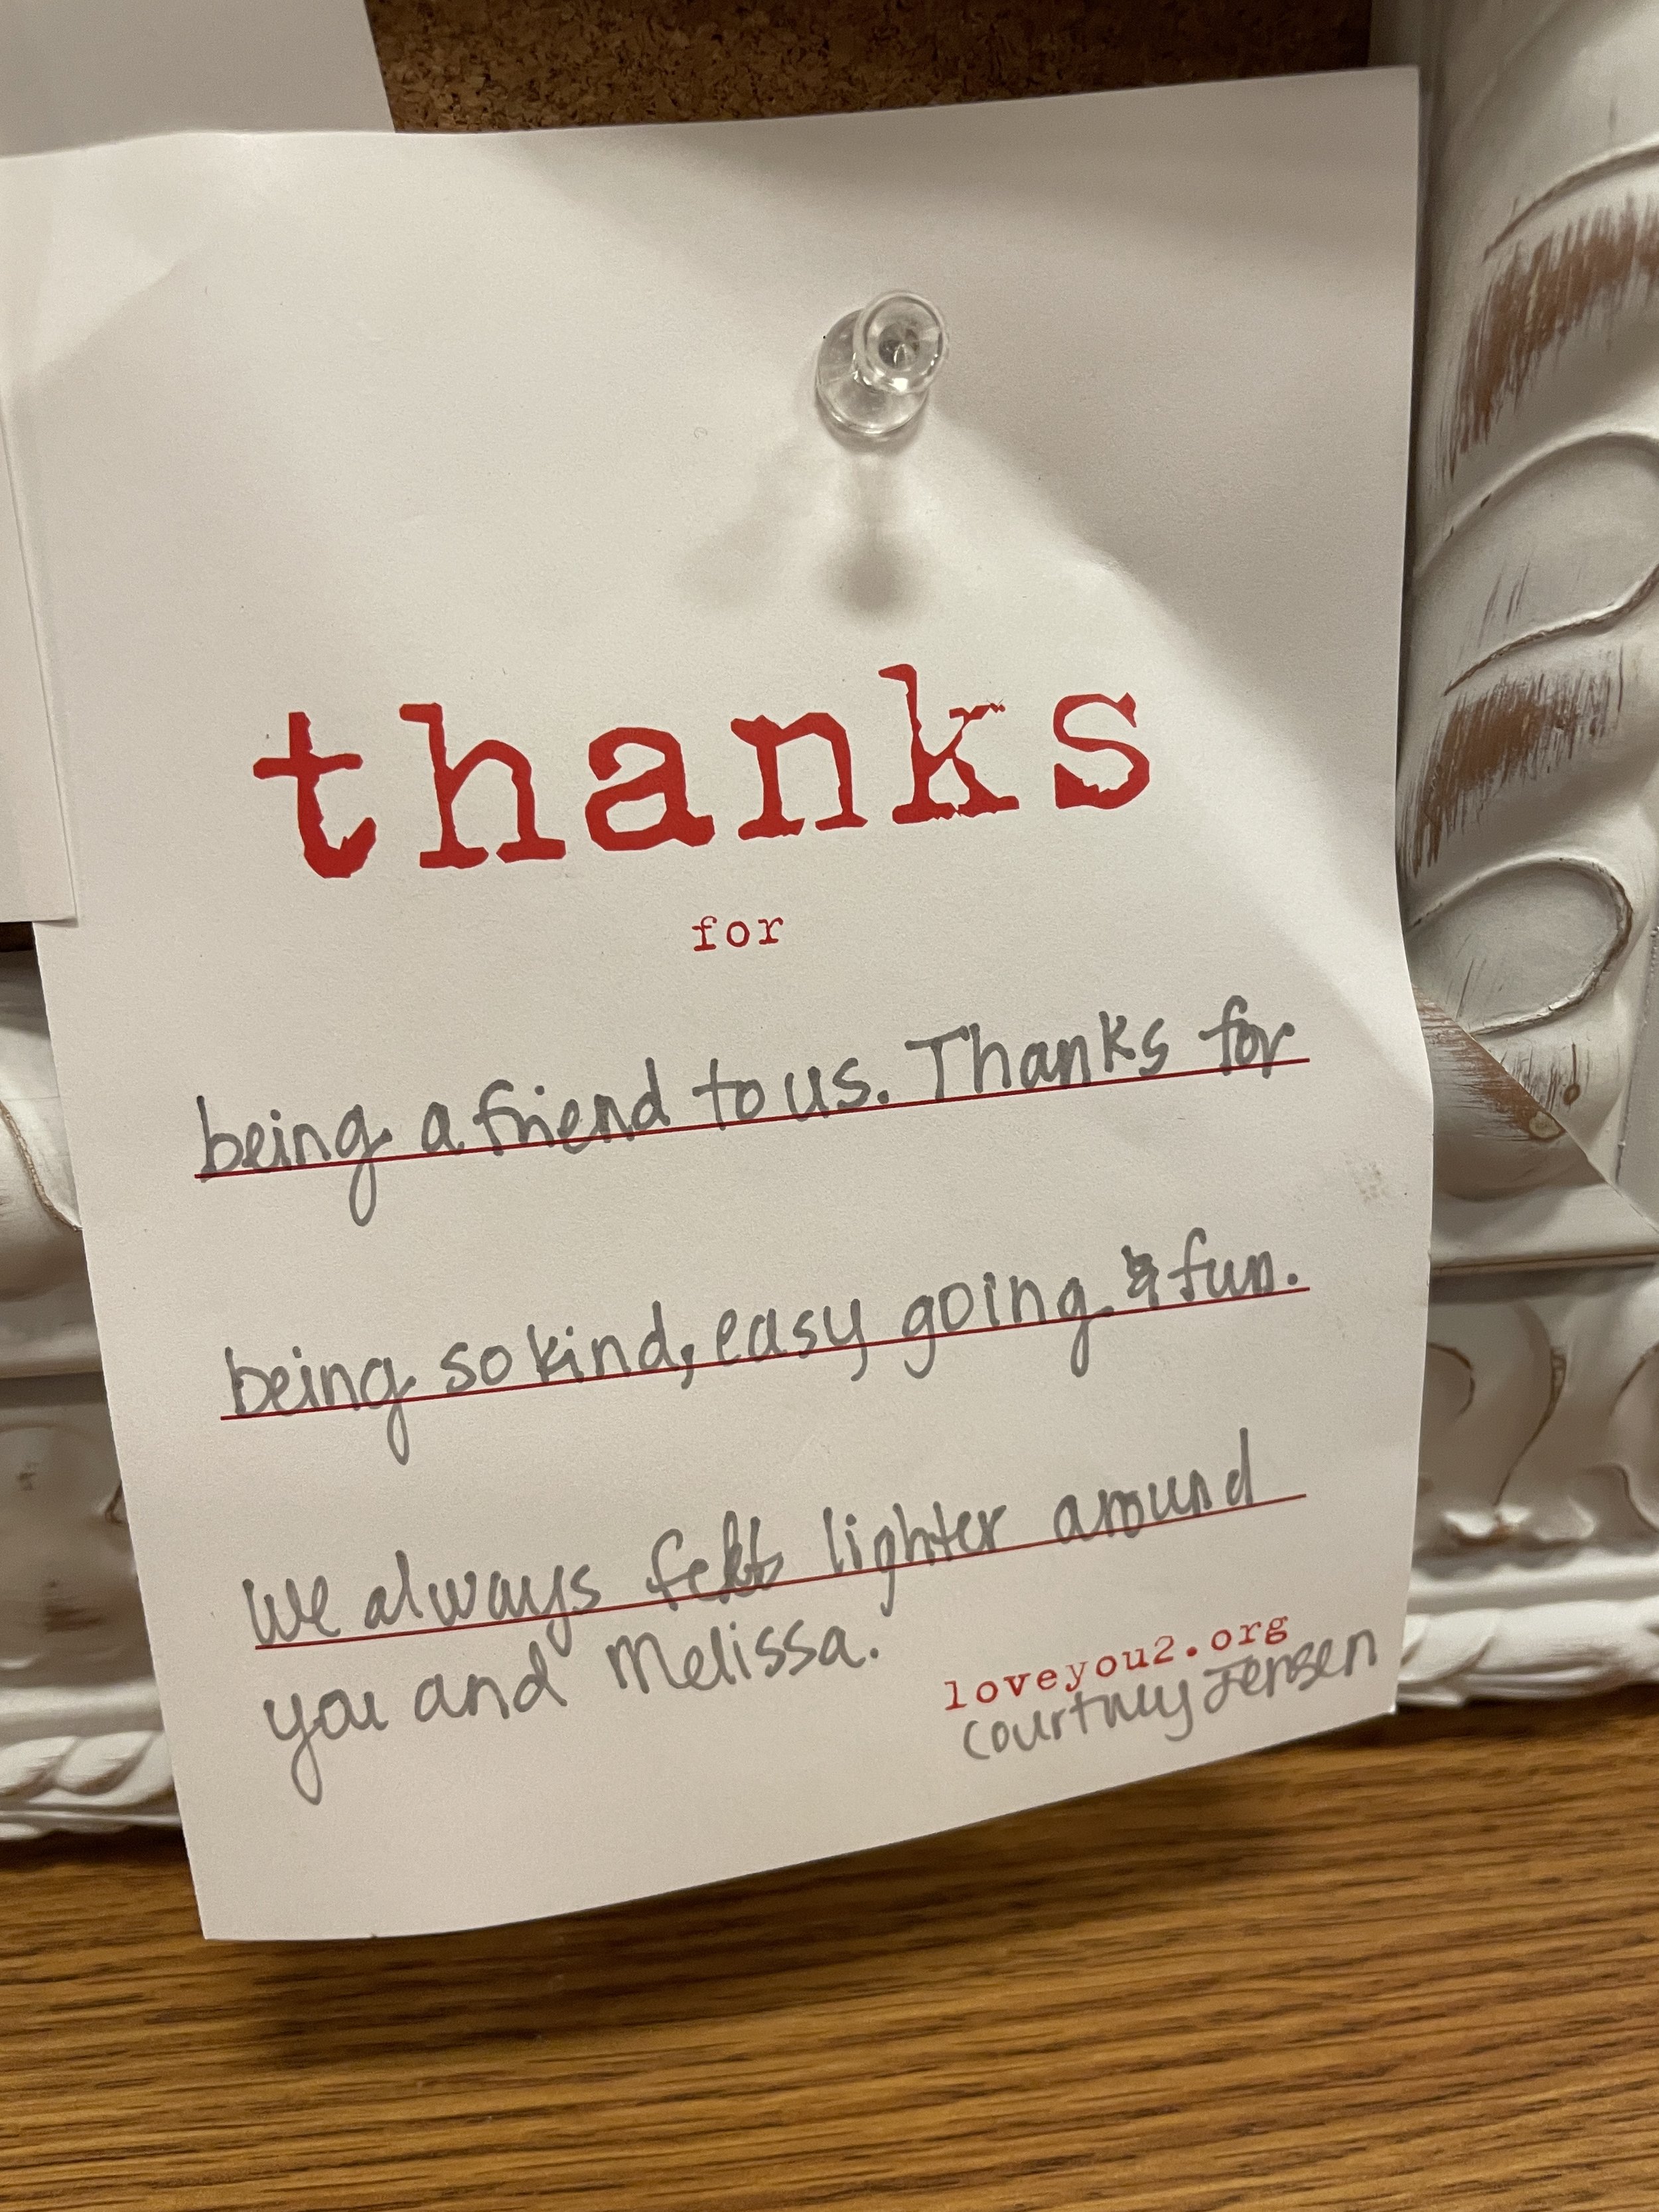 thanks
for
being a friend to us. Thanks for
being so kind, easy going & fun.
We always felt lighter around
you and Melissa.
loveyou2.org
Courtney Jensen